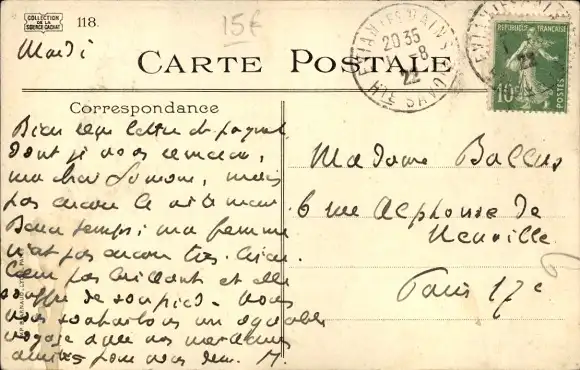 COLLECTION
DE LA
SOURCE CACHAT
118.
15€
Mardi
CARTE POSTALE
EVIAN LES BAINS
20 35
1 - 8
22
HTE SAVOIE
REPUBLIQUE FRANÇAISE
10c
POSTES
Correspondance
Bien reçu lettre et paquet
dont je vous remercie,
ma chère Simone, mais
pas encore le
Beau temps; ma femme
n'est pas encore très bien.
Cœur pas brillant et elle
souffre de son pied. Nous
vous souhaitons un agréable
voyage avec nos meilleures
amitiés pour vous deux. M.
Madame
6 rue Alphonse de
Neuville
Paris 17e